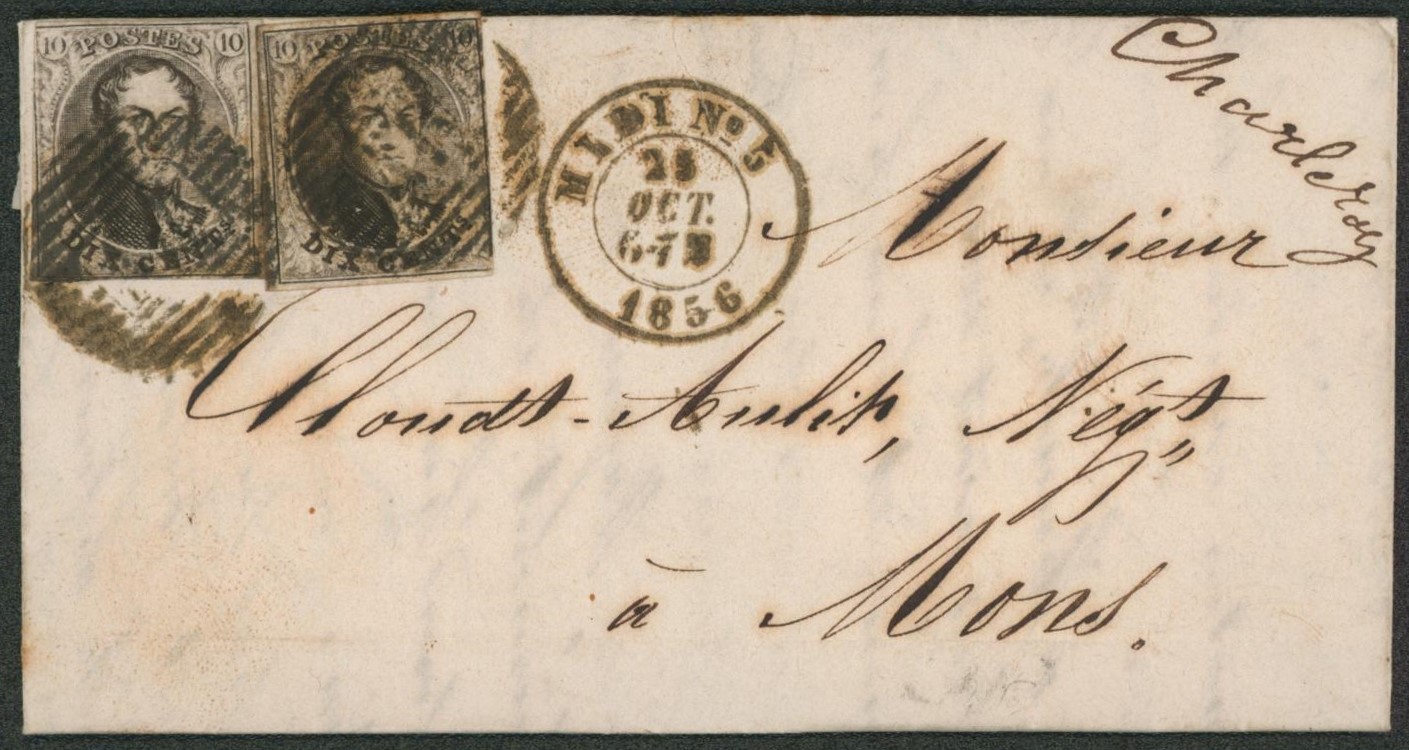 10 POSTES 10
DIX CENTS
10 POSTES 10
DIX CENTS
MIDI No 5
OCT.
1856
Charleroy
Monsieur
Négt
à Mons.